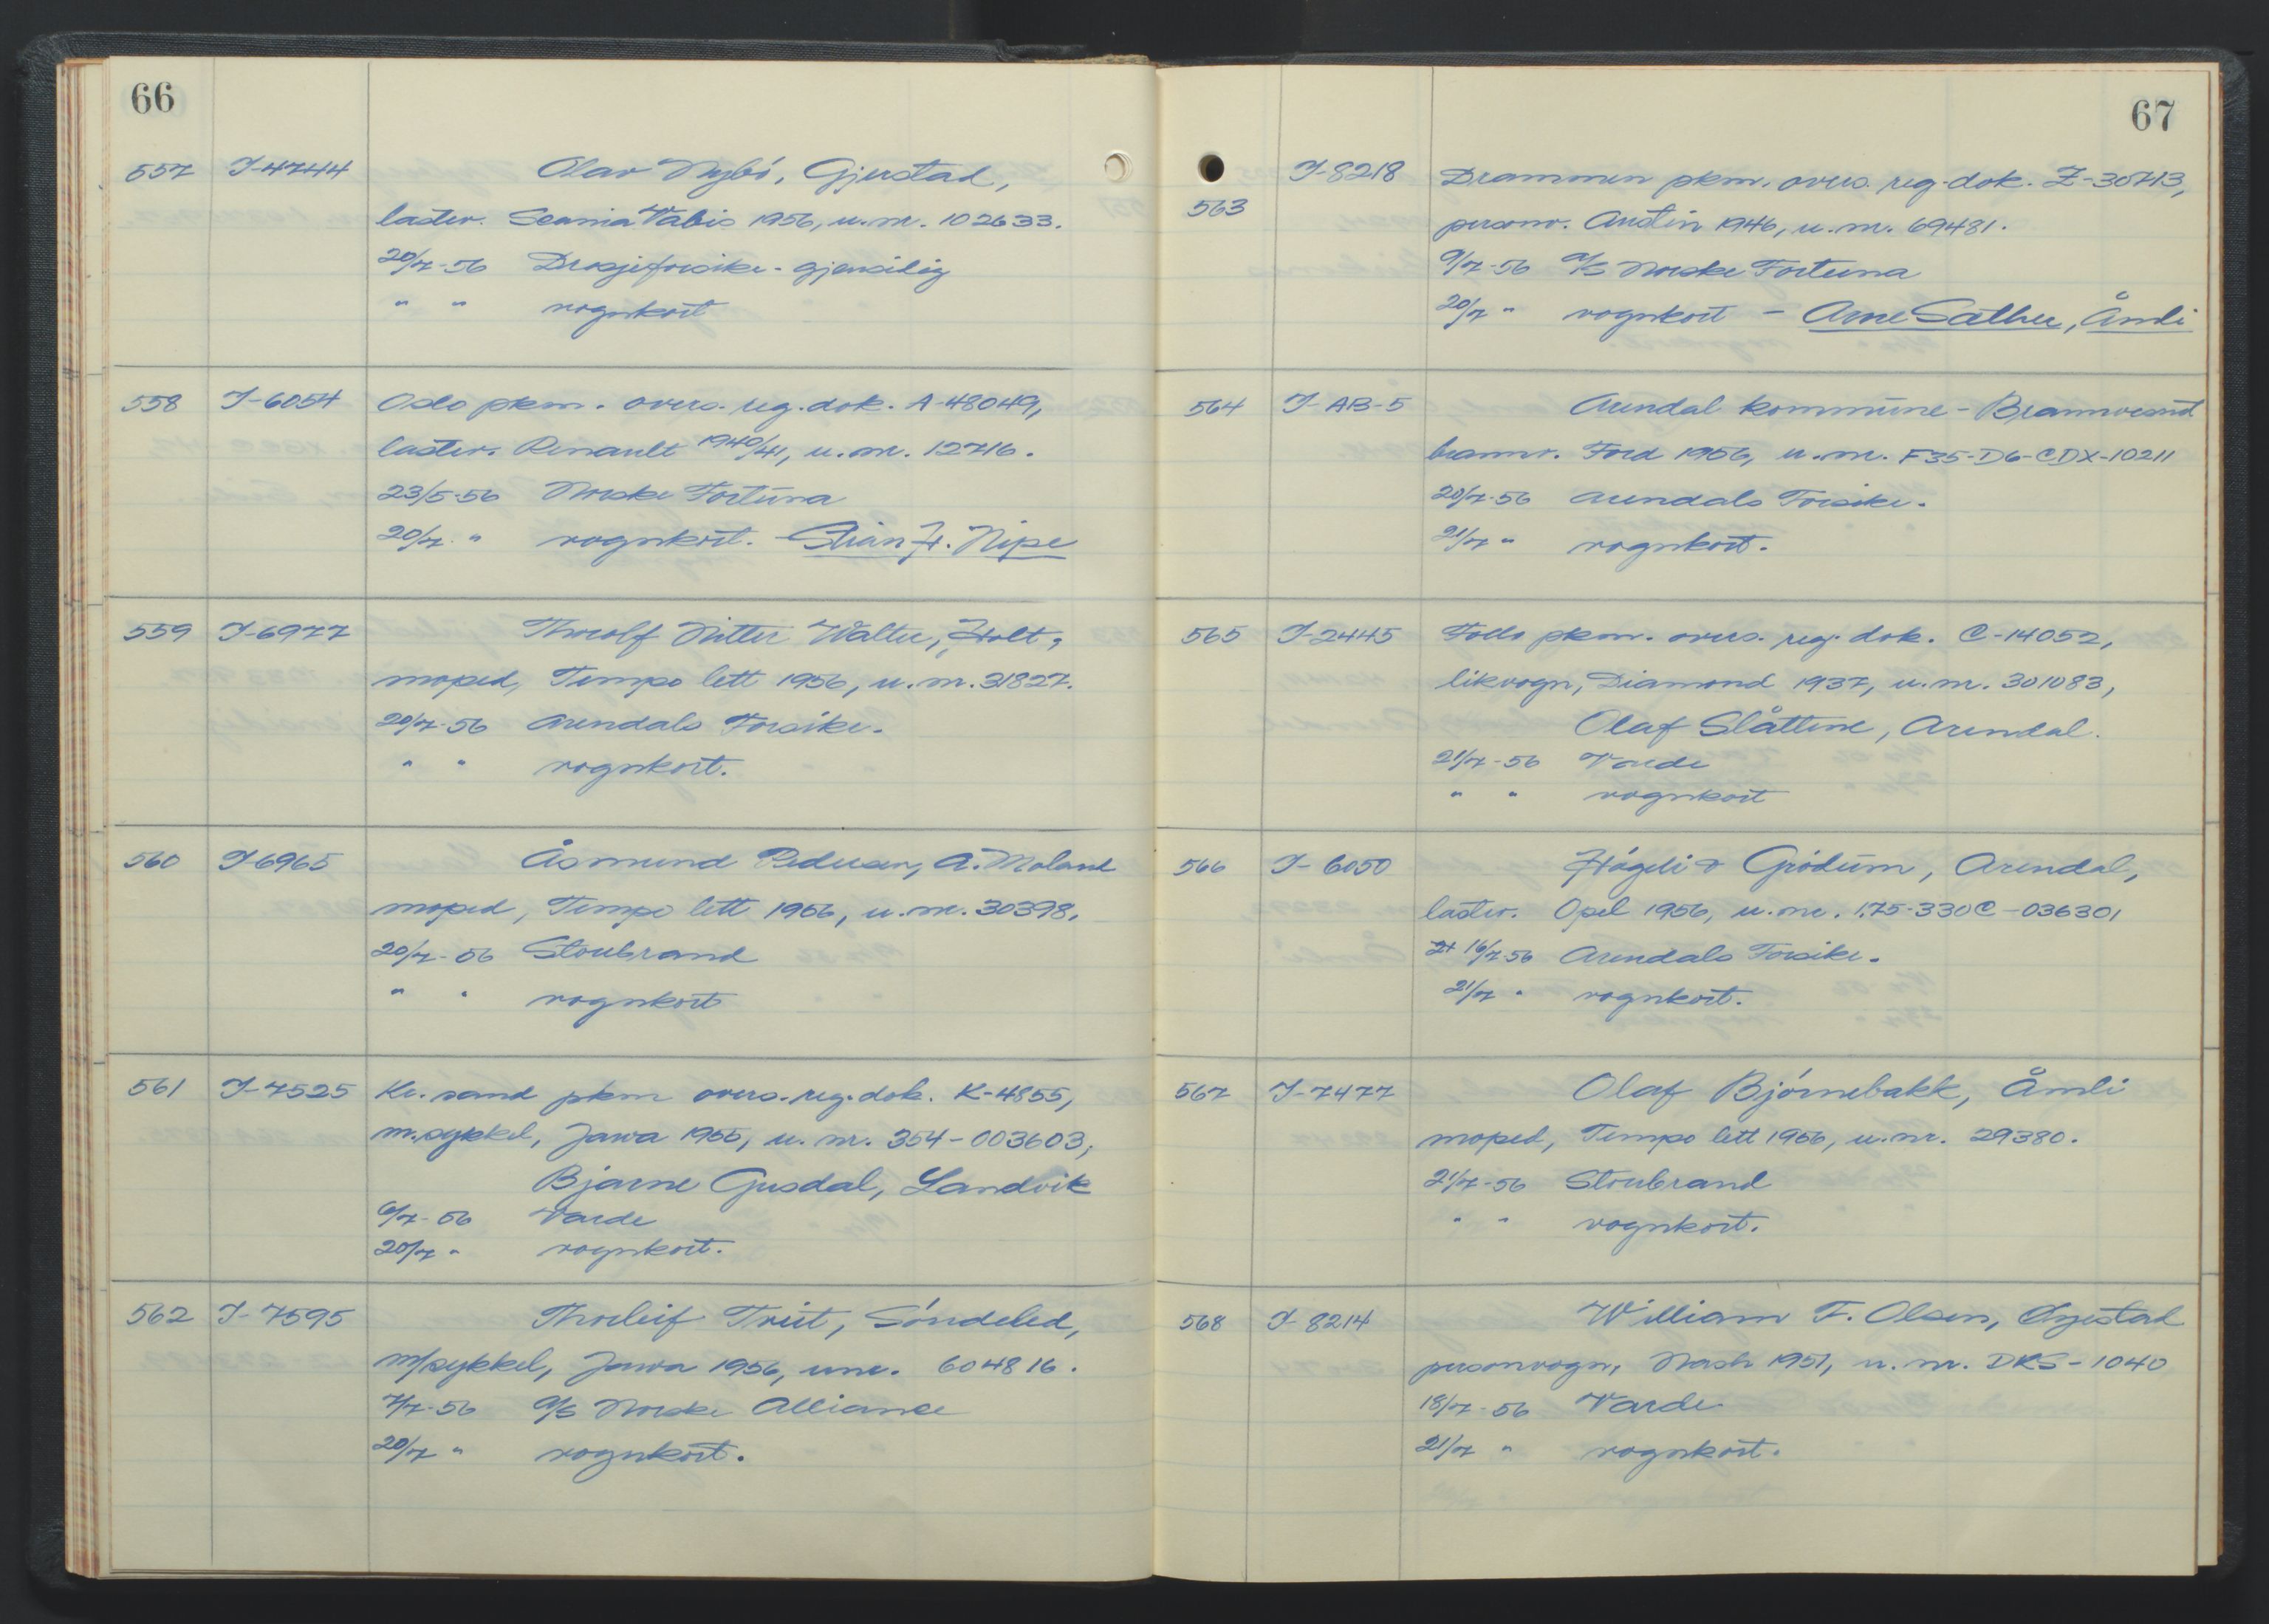 66
557 I-4744 Olav Nybö, Gjerstad,
lastev. Scania Vabis 1956, u.nr. 102633.
20/7-56 Drosjeforsikr. - gjensidig
" " vognkort
558 I-6054 Oslo pkm. overs. reg.dok. A-48049,
lastev. Renault 1940/41, u.nr. 12716.
23/5-56 Norske Fortuna
20/7 " vognkort. - Stian H. Nipe
559 I-6977 Thorolf Nitter Walter, Holt,
moped, Tempo lett 1956, u.nr. 31827.
20/7-56 Arendals Forsikr.
" " vognkort.
560 I-6965 Åsmund Pedersen, A. Moland
moped, Tempo lett 1956, u.nr. 30398.
20/7-56 Storebrand
" " vognkort
561 I-7525 Kr.sand pkm overs. reg.dok. K-4855,
m.sykkel, Jawa 1955, u.nr. 354-003603,
Bjarne Gusdal, Landvik
6/7-56 Varde
20/7 " vognkort.
562 I-7595 Thorleif Trist, Söndeled,
m/sykkel, Jawa 1956, unr. 604816.
7/7-56 A/S Norske Alliance
20/7 " vognkort.
67
I-8218 Drammen pkm. overs. reg.dok. Z-30713,
563 personv. Austin 1946, u.nr. 69481.
9/7-56 A/S Norske Fortuna
20/7 " vognkort - Arne Sæther, Åmli
564 I-AB-5 Arendal kommune - Brannvesnd
brannv. Ford 1956, u.nr. F35-D6-CDX-10211
20/7-56 Arendals Forsikr.
21/7 " vognkort.
565 I-2445 Follo pkm. overs. reg.dok. C-14052,
likvogn, Diamond 1937, u.nr. 301083,
Olaf Slåttene, Arendal.
21/7-56 Varde
" " vognkort
566 I-6050 Högeli & Grödum, Arendal,
lastev. Opel 1956, u.nr. 1.75-330C-036301
16/7-56 Arendals Forsikr.
21/7 " vognkort.
567 I-7477 Olaf Bjørnebakk, Åmli
moped, Tempo lett 1956, u.nr. 29380.
21/7-56 Storebrand
" " vognkort.
568 I-8214 William F. Olsen, Øyestad
personvogn, Nash 1951, u.nr. DKS-1040
18/7-56 Varde
21/7 " vognkort.